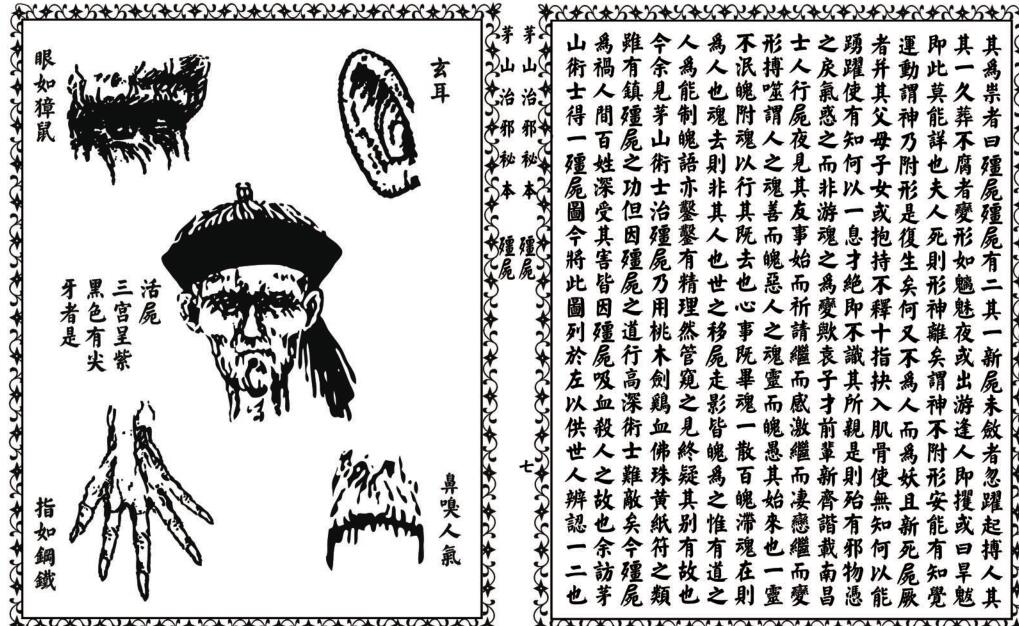 其爲祟者曰殭屍殭屍有二其一新屍未斂者忽躍起搏人其
其一久葬不腐者變形如魑魅夜或出游逢人即攫或曰旱魃
即此莫能詳也夫人死則形神離矣謂神不附形安能有知覺
運動謂神乃附形是復生矣何又不爲人而爲妖且新死屍厥
者并其父母子女或抱持不釋十指抉入肌骨使無知何以能
踴躍使有知何以一息才絕即不識其所親是則殆有邪物憑
之戾氣惑之而非游魂之爲變歟袁子才前輩新齊諧載南昌
士人行屍夜見其友事始而祈請繼而感激繼而凄戀繼而變
形搏噬謂人之魂善而魄惡人之魂靈而魄愚其始來也一靈
不泯魄附魂以行其既去也心事既畢魂一散百魄滯魂在則
爲人也魂去則非其人也世之移屍走影皆魄爲之惟有道之
人爲能制魄語亦鑿鑿有精理然管窺之見終疑其别有故也
今余見茅山術士治殭屍乃用桃木劍鷄血佛珠黃紙符之類
雖有鎮殭屍之功但因殭屍之道行高深術士難敵矣今殭屍
爲禍人間百姓深受其害皆因殭屍吸血殺人之故也余訪茅
山術士得一殭屍圖今將此圖列於左以供世人辨認一二也
茅山治邪祕本 殭屍
七
茅山治邪祕本 殭屍
玄耳
眼如獐鼠
活屍
三宫呈紫
黑色有尖
牙者是
鼻嗅人氣
指如鋼鐵